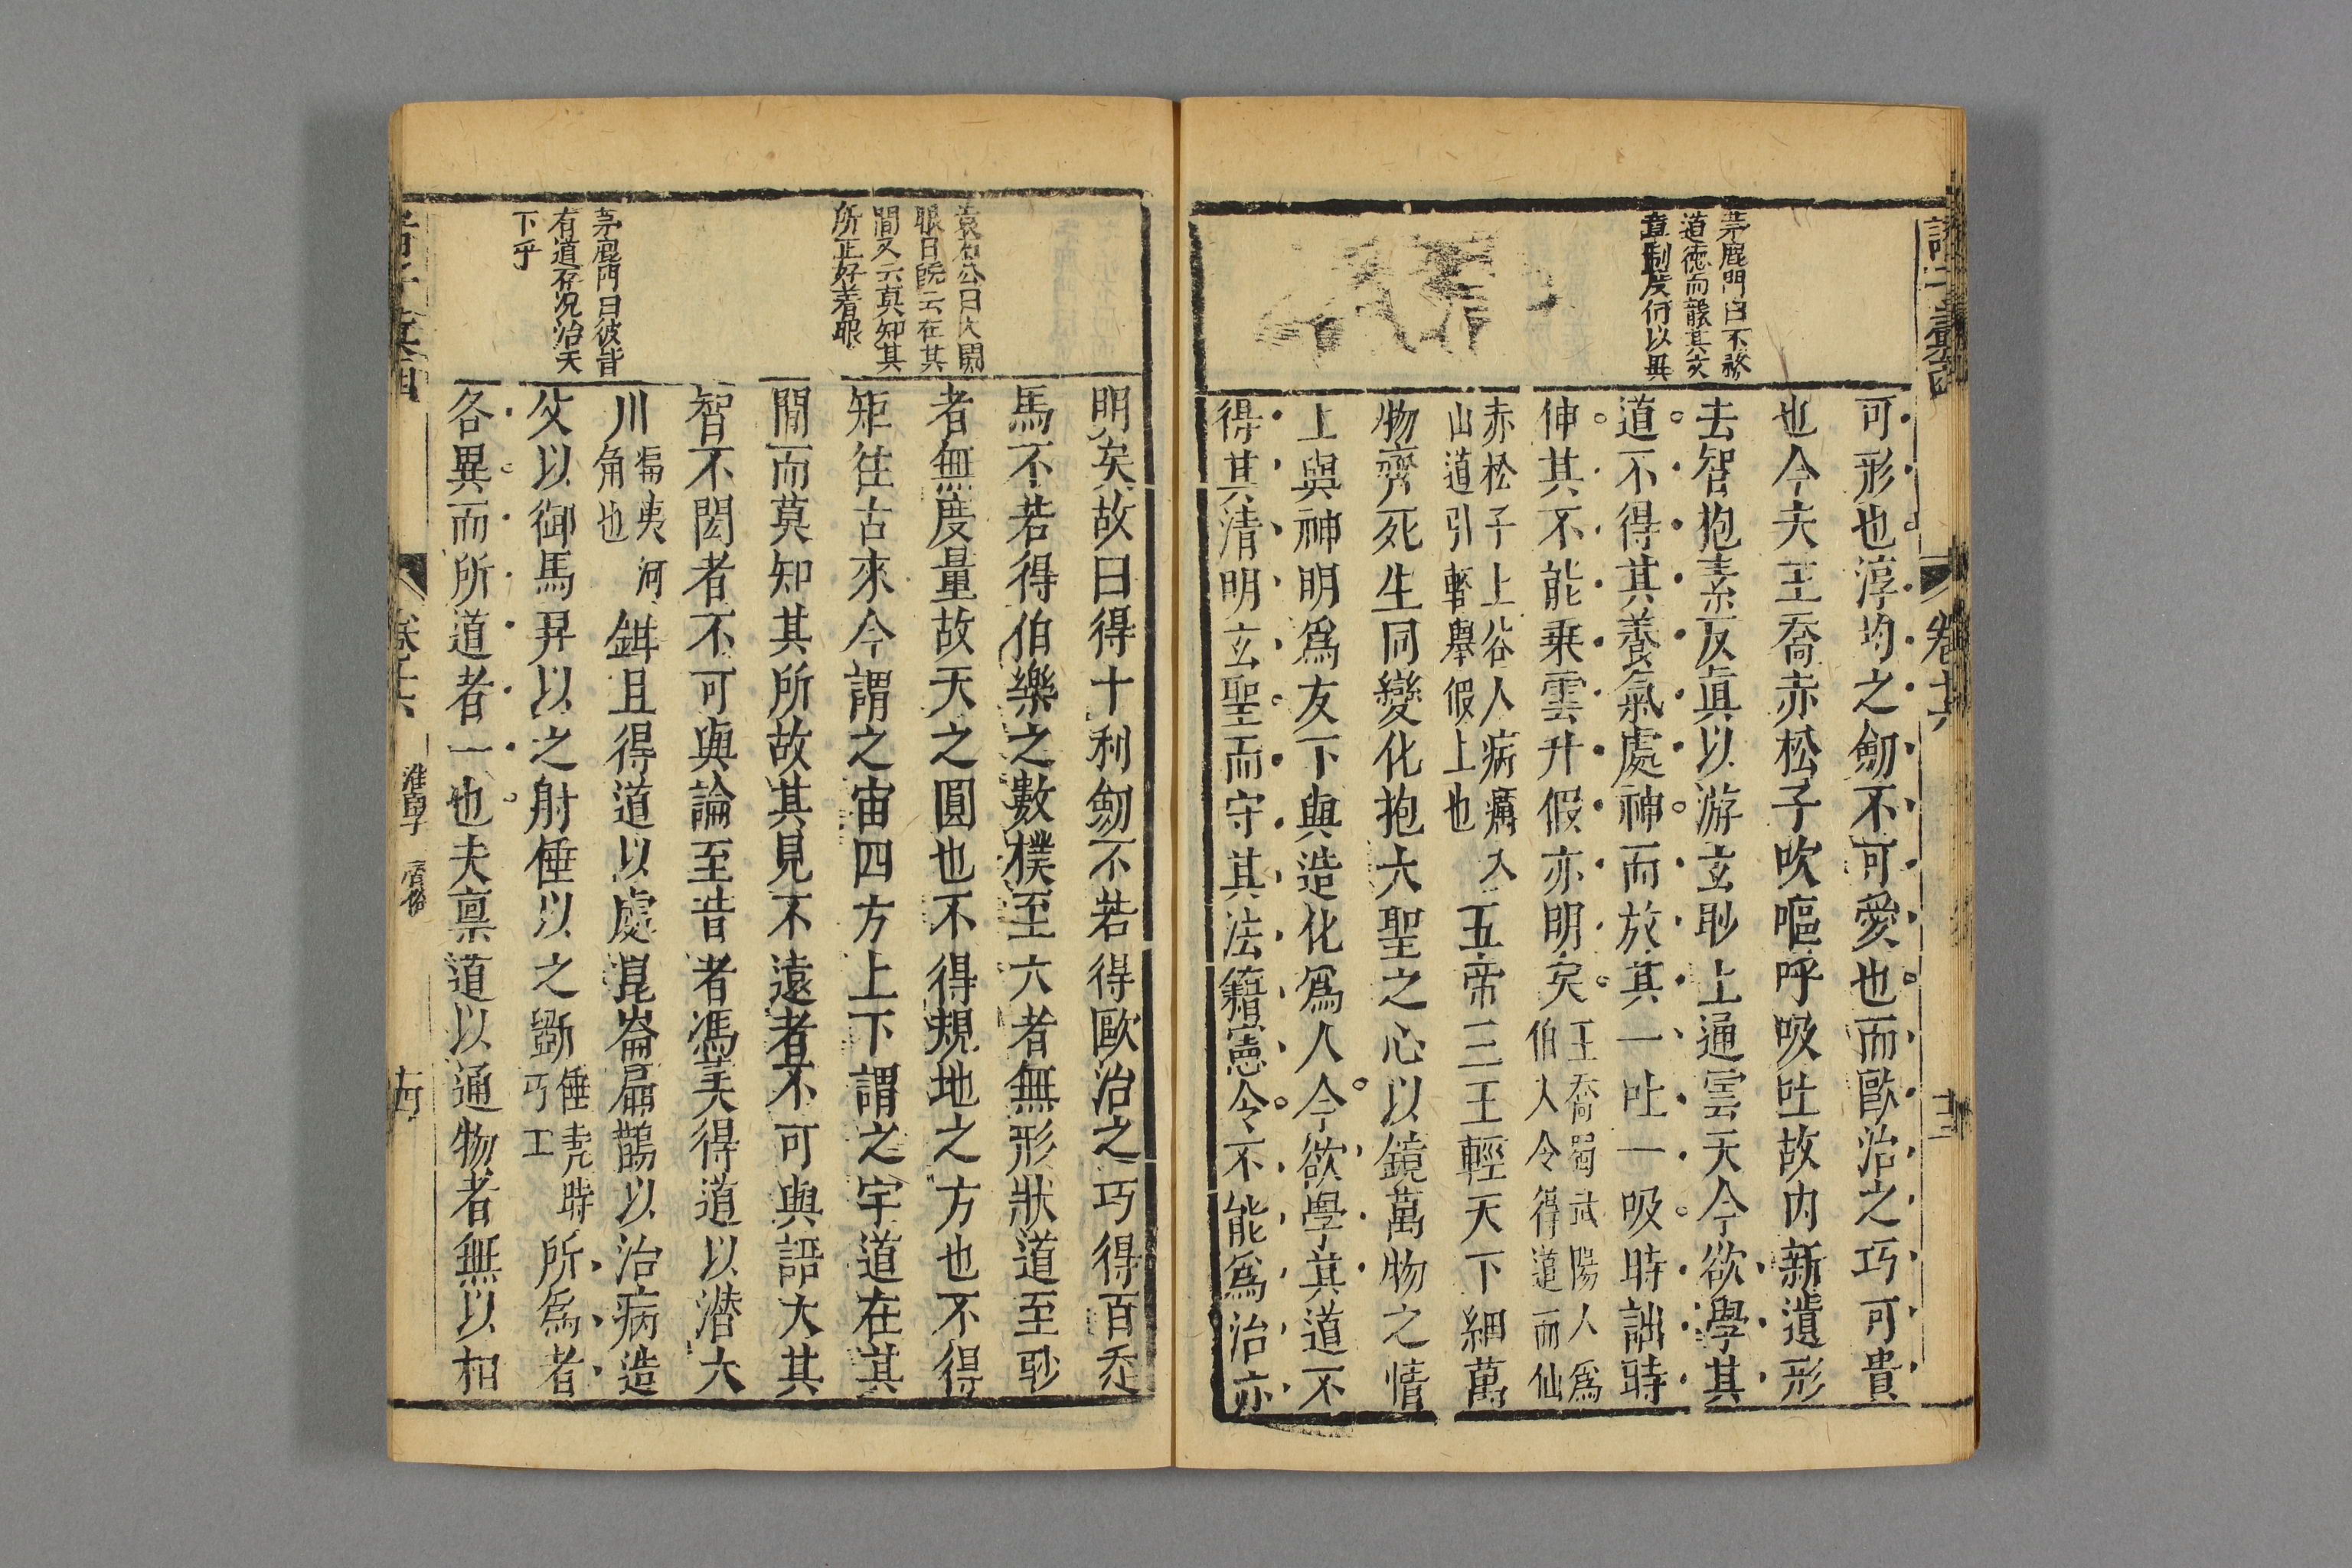 茅鹿門曰不務
道德而襲其文
章制度何以異
可形也淳均之劒不可愛也而歐冶之巧可貴
也今夫王喬赤松子吹嘔呼吸吐故内新遺形
去智抱素反真以游玄眇上通雲天今欲學其
道不得其養氣處神而放其一吐一吸時詘時
伸其不能乗雲升假亦明矣
王喬蜀武陽人爲
伯人令得道而仙
赤松子上谷人病癘入
山道引輕舉假上也
五帝三王輕天下細萬
物齊死生同變化抱大聖之心以鏡萬物之情
上與神明爲友下與造化爲人今欲學其道不
得其清明玄聖而守其法籍憲令不能爲治亦
卷十六
袁石公曰大開
眼目旣云在其
間又云真知其
所正好著眼
茅鹿門曰彼皆
有道存況治天
下乎
明矣故曰得十利劒不若得歐冶之巧得百走
馬不若得伯樂之數樸至大者無形狀道至眇
者無度量故天之圓也不得規地之方也不得
矩往古來今謂之宙四方上下謂之宇道在其
間而莫知其所故其見不遠者不可與語大其
智不閎者不可與論至昔者馮夷得道以潜大
川
馮夷河
角也
鉗且得道以處崑崙扁鵲以治病造
父以御馬羿以之射倕以之斵
倕堯時
巧工
所爲者
各異而所道者一也夫稟道以通物者無以相
淮南子 齊俗